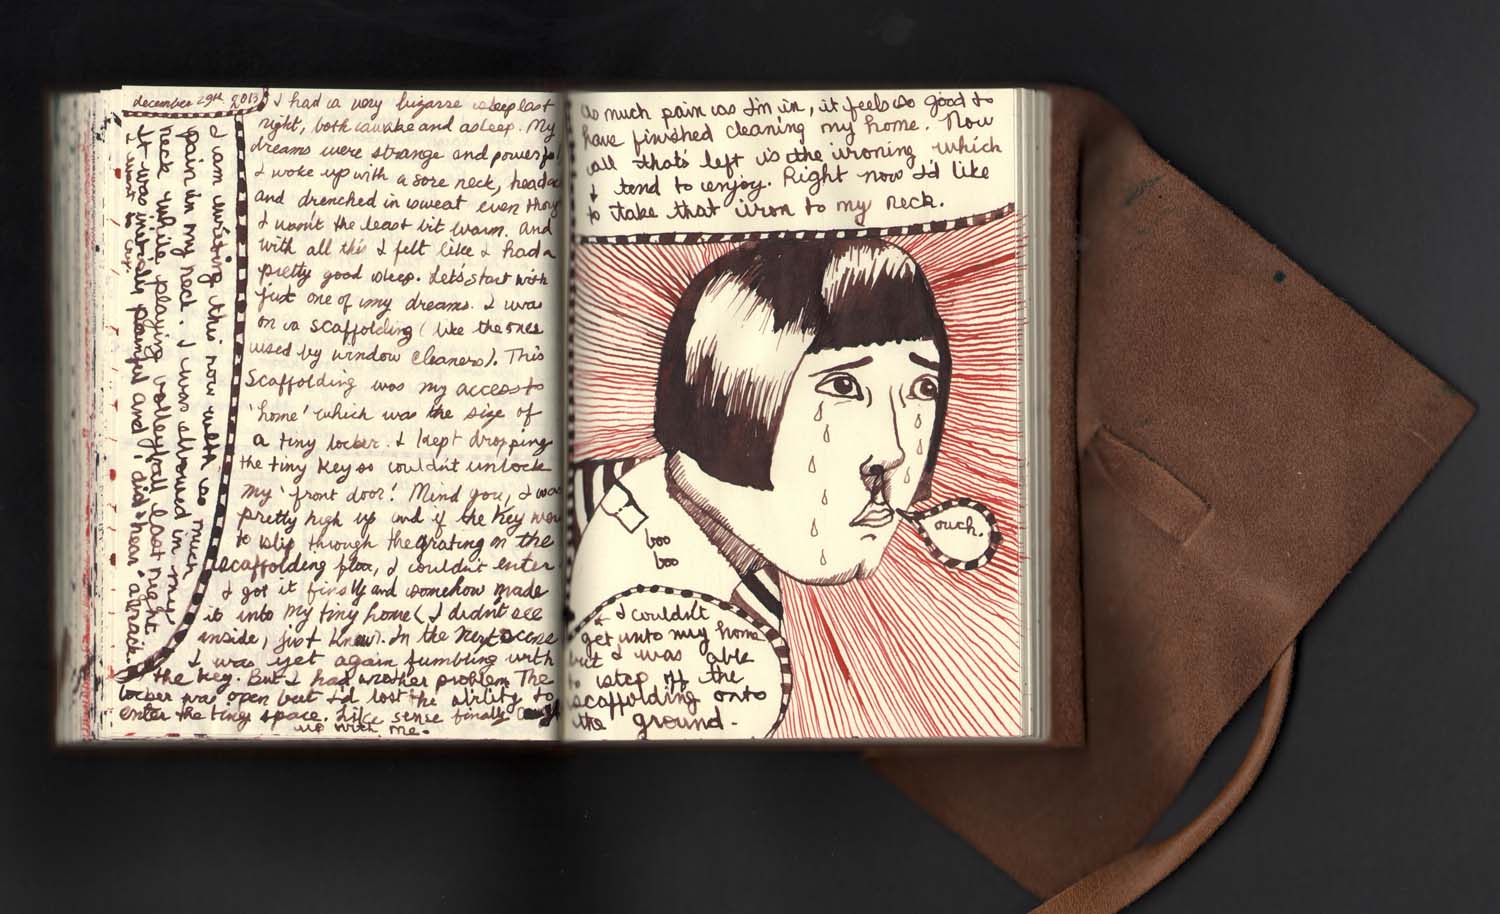 december 29th 2013
I had a very bizarre sleep last
night, both awake and asleep. My
dreams were strange and powerful
I woke up with a sore neck, heada
and drenched in sweat even thoug
I wasn't the least bit warm. And
with all this I felt like I had a
pretty good sleep. Let's start with
just one of my dreams. I was
on a scaffolding (like the ones
used by window cleaners). This
scaffolding was my access to
'home' which was the size of
a tiny locker. I kept dropping
the tiny key so couldn't unlock
my 'front door'! Mind you, I was
pretty high up and if the key wer
to slip through the grating on the
scaffolding floor, I couldn't enter
I got it finally and somehow made
it into my tiny home (I didn't see
inside, just knew). In the next scene
I was yet again fumbling with
the key. But I had another problem. The
locker was open but I'd lost the ability to
enter the tiny space. Like sense finally
up with me.
I am writing this now with as much
pain in my neck. I was elbowed in my
neck while playing volleyball last night
It was intensely painful and I did hear a crack.
I want to cry.
as much pain as I'm in, it feels so good to
have finished cleaning my home. Now
all that's left is the ironing which
I tend to enjoy. Right now I'd like
to take that iron to my neck.
boo
boo
ouch.
I couldn't
get into my home
but I was able
to step off the
scaffolding onto
the ground.